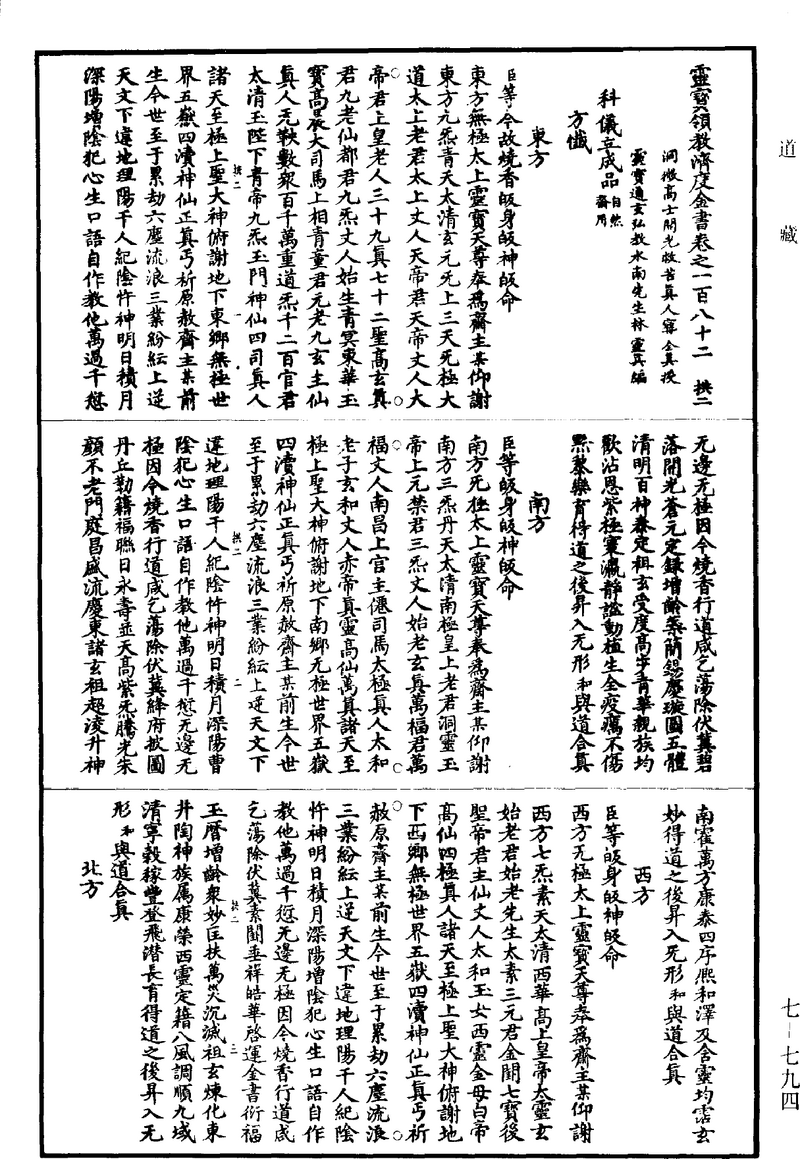 道藏
七－七九四
靈寶領教濟度金書卷之一百八十二　拱二
洞微高士開光救苦真人寧全真授
靈寶通玄弘教水南先生林靈真編
科儀立成品自然齋用
方懺
東方
臣等今故燒香皈身皈神皈命
東方無極太上靈寶天尊奉為齋主某仰謝
東方九炁青天太清玄元无上三天无極大
道太上老君太上丈人天帝君天帝丈人大
帝君上皇老人三十九真七十二聖高玄真
君九老仙都君九炁丈人始生青冥東華玉
寶高晨大司馬上相青童君元老九玄主仙
真人无鞅數眾百千萬重道炁千二百官君
太清玉陛下青帝九炁玉門神仙四司真人
拱二　一
諸天至極上聖大神俯謝地下東鄉無極世
界五嶽四瀆神仙正真丐祈原赦齋主某前
生今世至于累劫六塵流浪三業紛紜上逆
天文下違地理陽干人紀陰忤神明日積月
深陽增陰犯心生口語自作教他萬過千愆
无邊无極因今燒香行道咸乞蕩除伏冀碧
落開光蒼元定錄增齡築簡錫慶璇圖五體
清明百神泰定祖玄受度高步青華親族均
歡沾恩紫極寰瀛靜謐動植生全疫癘不傷
黔黎樂育得道之後昇入无形和與道合真
南方
臣等皈身皈神皈命
南方无極太上靈寶天尊奉為齋主某仰謝
南方三炁丹天太清南極皇上老君洞靈玉
帝上元禁君三炁丈人始老玄真萬福君萬
福丈人南昌上官主僊司馬太極真人太和
老子玄和丈人赤帝真靈高仙萬真諸天至
極上聖大神俯謝地下南鄉无極世界五嶽
四瀆神仙正真丐祈原赦齋主某前生今世
至于累劫六塵流浪三業紛紜上逆天文下
拱二　二
違地理陽干人紀陰忤神明日積月深陽曹
陰犯心生口語自作教他萬過千愆无邊无
極因今燒香行道咸乞蕩除伏冀絳府披圖
丹丘勒籍福聯日永壽並天高紫炁騰光朱
顏不老門庭昌盛流慶東諸玄祖超淩升神
南霍萬方康泰四序熙和澤及含靈均霑玄
妙得道之後昇入无形和與道合真
西方
臣等皈身皈神皈命
西方无極太上靈寶天尊奉為齋主某仰謝
西方七炁素天太清西華高上皇帝太靈玄
始老君始老先生太素三元君金闕七寶後
聖帝君主仙丈人太和玉女西靈金母白帝
高仙四極真人諸天至極上聖大神俯謝地
下西鄉無極世界五嶽四瀆神仙正真丐祈
赦原齋主某前生今世至于累劫六塵流浪
三業紛紜上逆天文下違地理陽干人紀陰
忤神明日積月深陽增陰犯心生口語自作
教他萬過千愆无邊无極因今燒香行道咸
乞蕩除伏冀素闕垂祥皓華啓運金書衍福
拱二　三
玉曆增齡衆妙匡扶萬災沉滅祖玄煉化東
井陶神族属康榮西靈定籍八風調順九域
清寧穀稼豐登飛潛長育得道之後昇入无
形和與道合真
北方